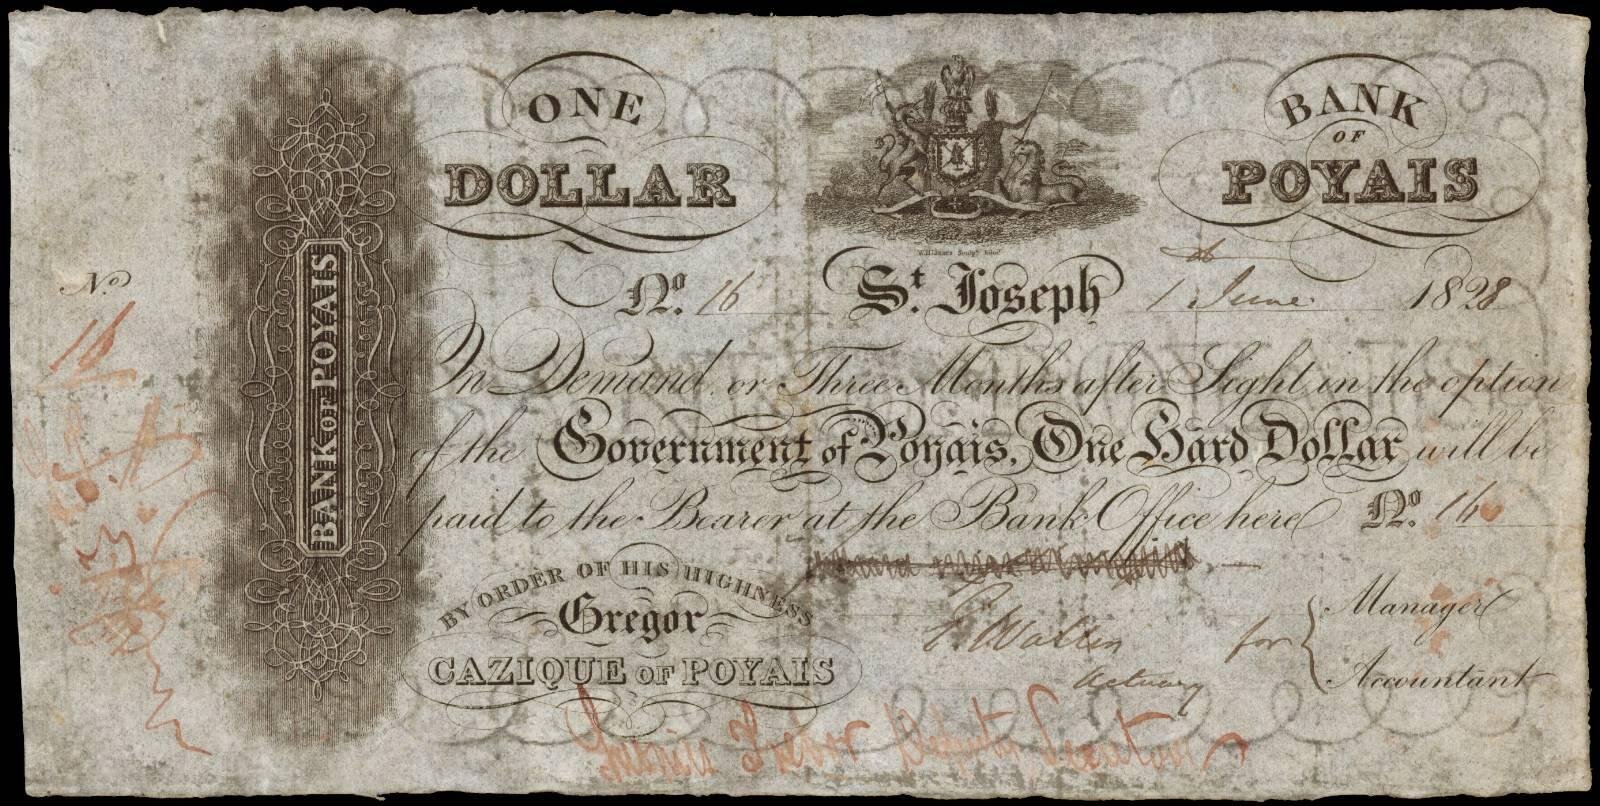 ONE
DOLLAR
BANK
OF
POYAIS
No. 16
St. Joseph
1 June 1828
No.
16
BANK OF POYAIS
On Demand, or Three Months after Sight in the option
of the Government of Poyais, One Hard Dollar will be
paid to the Bearer at the Bank Office here No. 16
BY ORDER OF HIS HIGHNESS
Gregor
CAZIQUE OF POYAIS
Actuary
for
Manager
Accountant